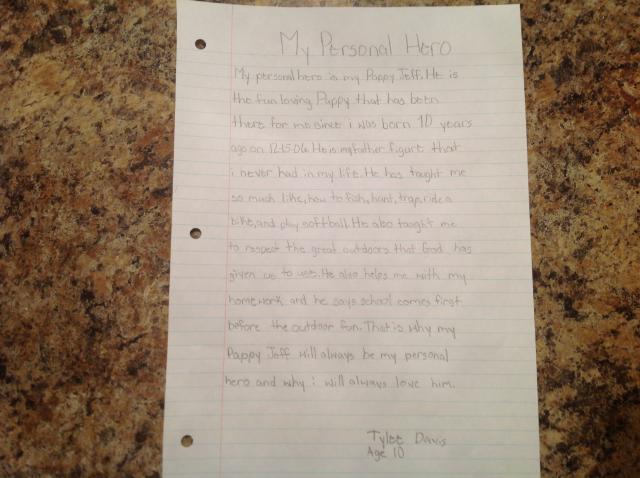 My Personal Hero
My personal hero is my Pappy Jeff. He is
the fun loving Pappy that has been
there for me since i was born 10 years
ago on 12-15-06. He is my father figure that
i never had in my life. He has taught me
so much like, how to fish, hunt, trap, ride a
bike, and play softball. He also taught me
to respect the great outdoors that God has
given us to use. He also helps me with my
homework and he says school comes first
before the outdoor fun. That is why my
Pappy Jeff will always be my personal
hero and why i will always love him.
Tylee Davis
Age 10